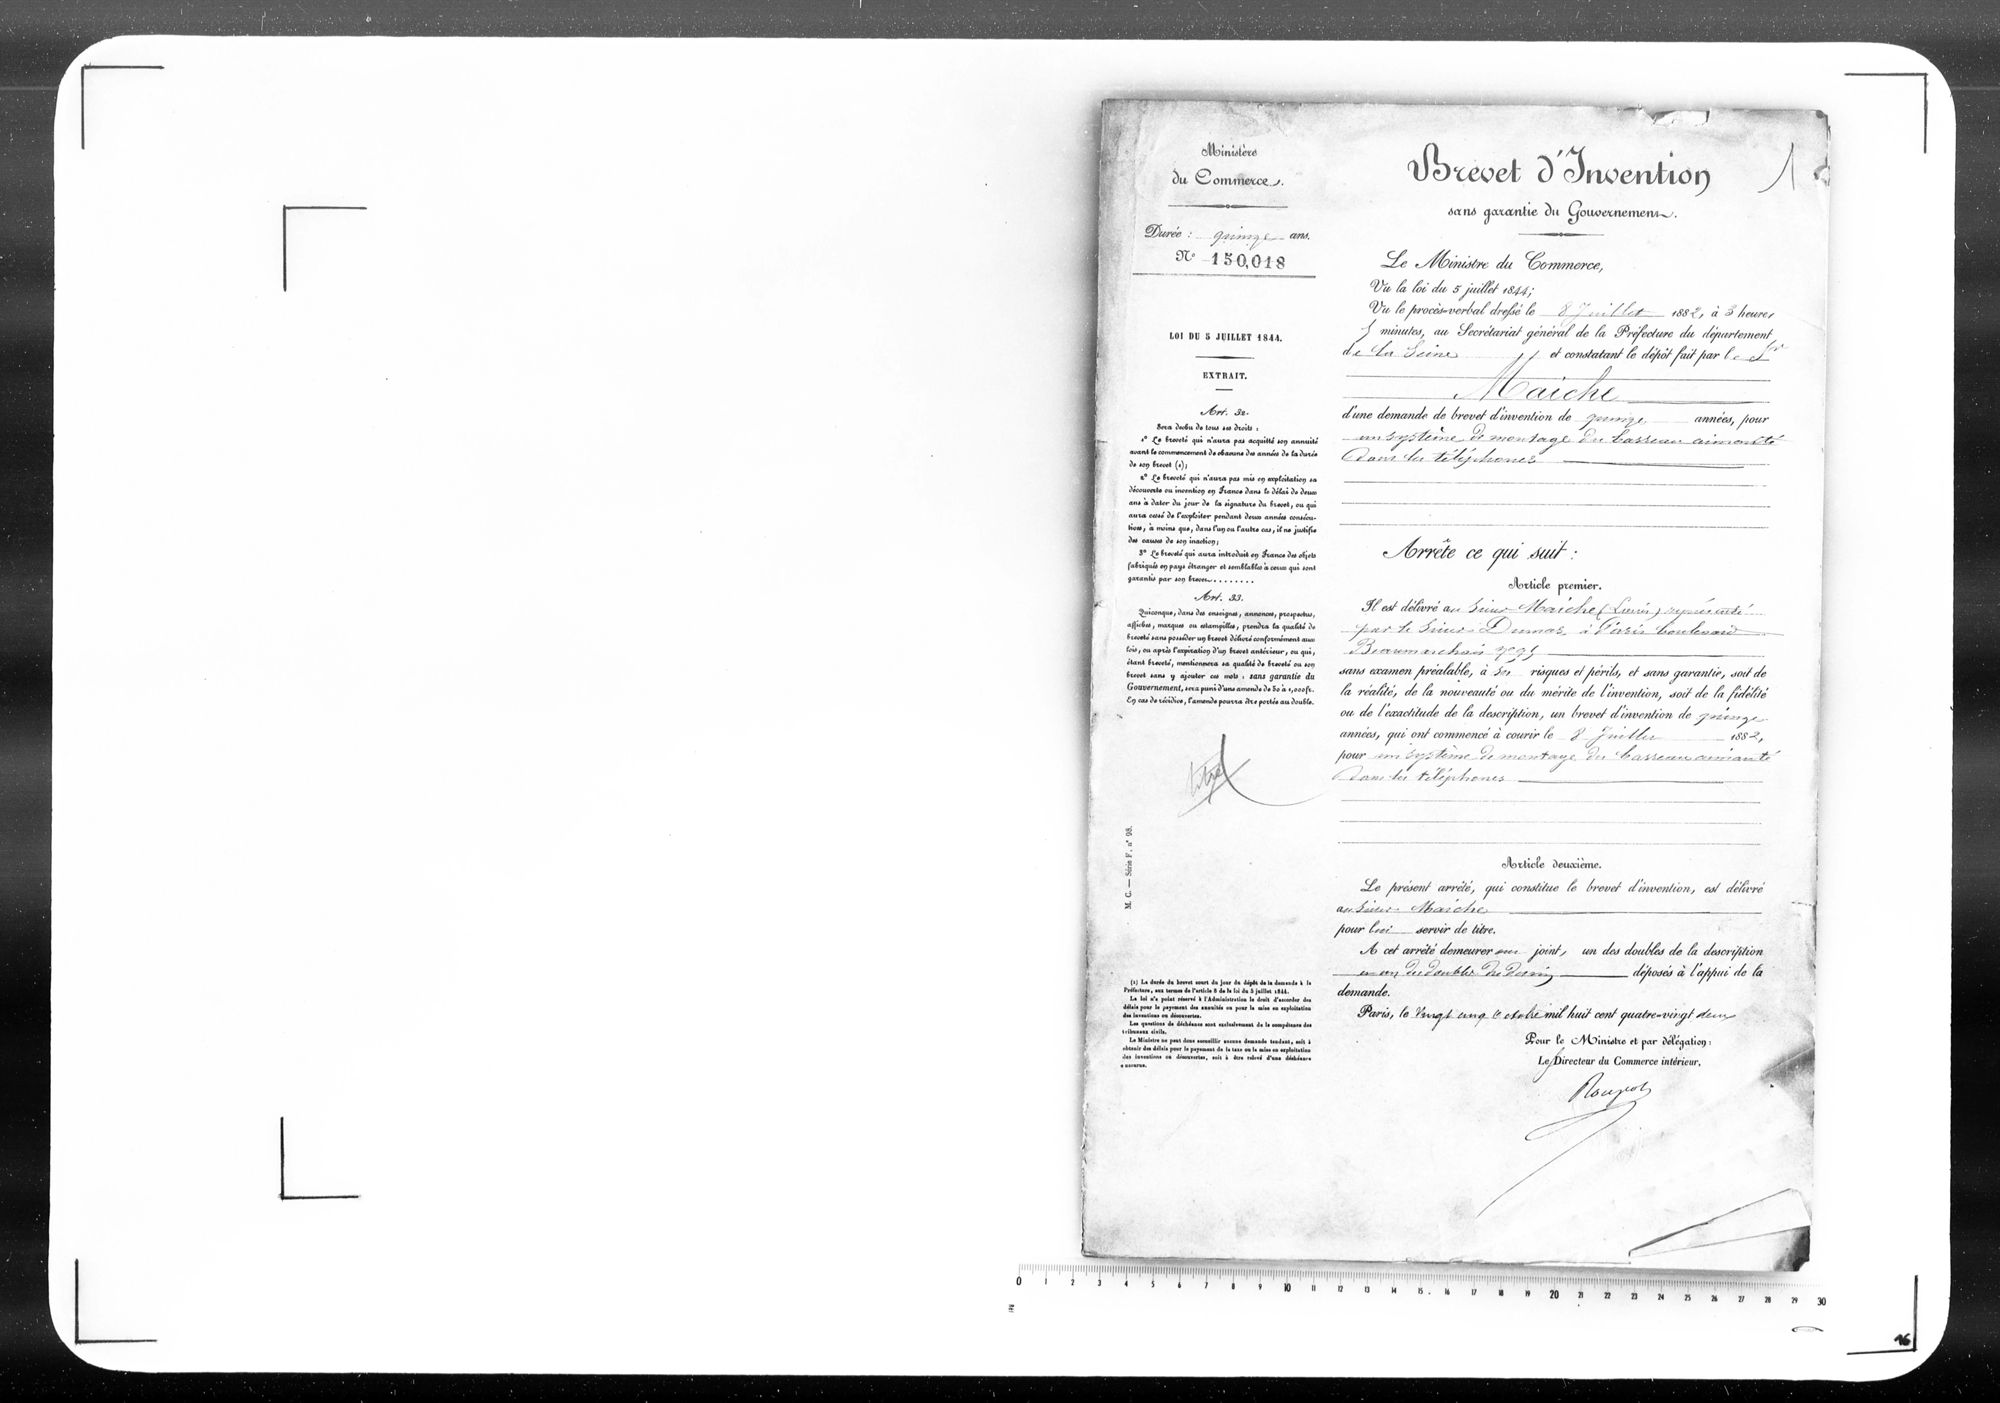 Ministère
du Commerce.
Durée : quinze ans.
N° 150,018
LOI DU 5 JUILLET 1844.
EXTRAIT.
Art. 32.
Sera déchu de tous ses droits :
1° Le breveté qui n'aura pas acquitté son annuité
avant le commencement de chacune des années de la durée
de son brevet (1);
2° Le breveté qui n'aura pas mis en exploitation sa
découverte ou invention en France dans le délai de deux
ans à dater du jour de la signature du brevet, ou qui
aura cessé de l'exploiter pendant deux années consécu-
tives, à moins que, dans l'un ou l'autre cas, il ne justifie
des causes de son inaction;
3° Le breveté qui aura introduit en France des objets
fabriqués en pays étranger et semblables à ceux qui sont
garantis par son brevet........
Art. 33.
Quiconque, dans des enseignes, annonces, prospectus,
affiches, marques ou estampilles, prendra la qualité de
breveté sans posséder un brevet délivré conformément aux
lois, ou après l'expiration d'un brevet antérieur, ou qui,
étant breveté, mentionnera sa qualité de breveté ou son
brevet sans y ajouter ces mots : sans garantie du
Gouvernement, sera puni d'une amende de 50 à 1,000 fr.
En cas de récidive, l'amende pourra être portée au double.
titre
M. C. — Série F, n° 98.
(1) La durée du brevet court du jour du dépôt de la demande à la
Préfecture, aux termes de l'article 8 de la loi du 5 juillet 1844.
La loi n'a point réservé à l'Administration le droit d'accorder des
délais pour le payement des annuités ou pour la mise en exploitation
des inventions ou découvertes.
Les questions de déchéance sont exclusivement de la compétence des
tribunaux civils.
Le Ministre ne peut donc accueillir aucune demande tendant, soit à
obtenir des délais pour le payement de la taxe ou la mise en exploitation
des inventions ou découvertes, soit à être relevé d'une déchéance
encourue.
Brevet d'Invention
1
sans garantie du Gouvernement.
Le Ministre du Commerce,
Vu la loi du 5 juillet 1844;
Vu le procès-verbal dressé le 8 Juillet 1882, à 3 heures
5 minutes, au Secrétariat général de la Préfecture du département
de la Seine et constatant le dépôt fait par le Sr
Maiche
d'une demande de brevet d'invention de quinze années, pour
un système de montage du barreau aimanté
dans les téléphones
Arrête ce qui suit :
Article premier.
Il est délivré au Sieur Maiche (Louis) représenté
par le Sieur Dumas, à Paris boulevard
Beaumarchais n° 95
sans examen préalable, à ses risques et périls, et sans garantie, soit de
la réalité, de la nouveauté ou du mérite de l'invention, soit de la fidélité
ou de l'exactitude de la description, un brevet d'invention de quinze
années, qui ont commencé à courir le 8 Juillet 1882,
pour un système de montage du barreau aimanté
dans les téléphones
Article deuxième.
Le présent arrêté, qui constitue le brevet d'invention, est délivré
au Sieur Maiche
pour lui servir de titre.
A cet arrêté demeurer ont joint, un des doubles de la description
et un des doubles du dessin déposés à l'appui de la
demande.
Paris, le vingt cinq octobre mil huit cent quatre-vingt deux
Pour le Ministre et par délégation :
Le Directeur du Commerce intérieur,
0 1 2 3 4 5 6 7 8 9 10 11 12 13 14 15 16 17 18 19 20 21 22 23 24 25 26 27 28 29 30
16